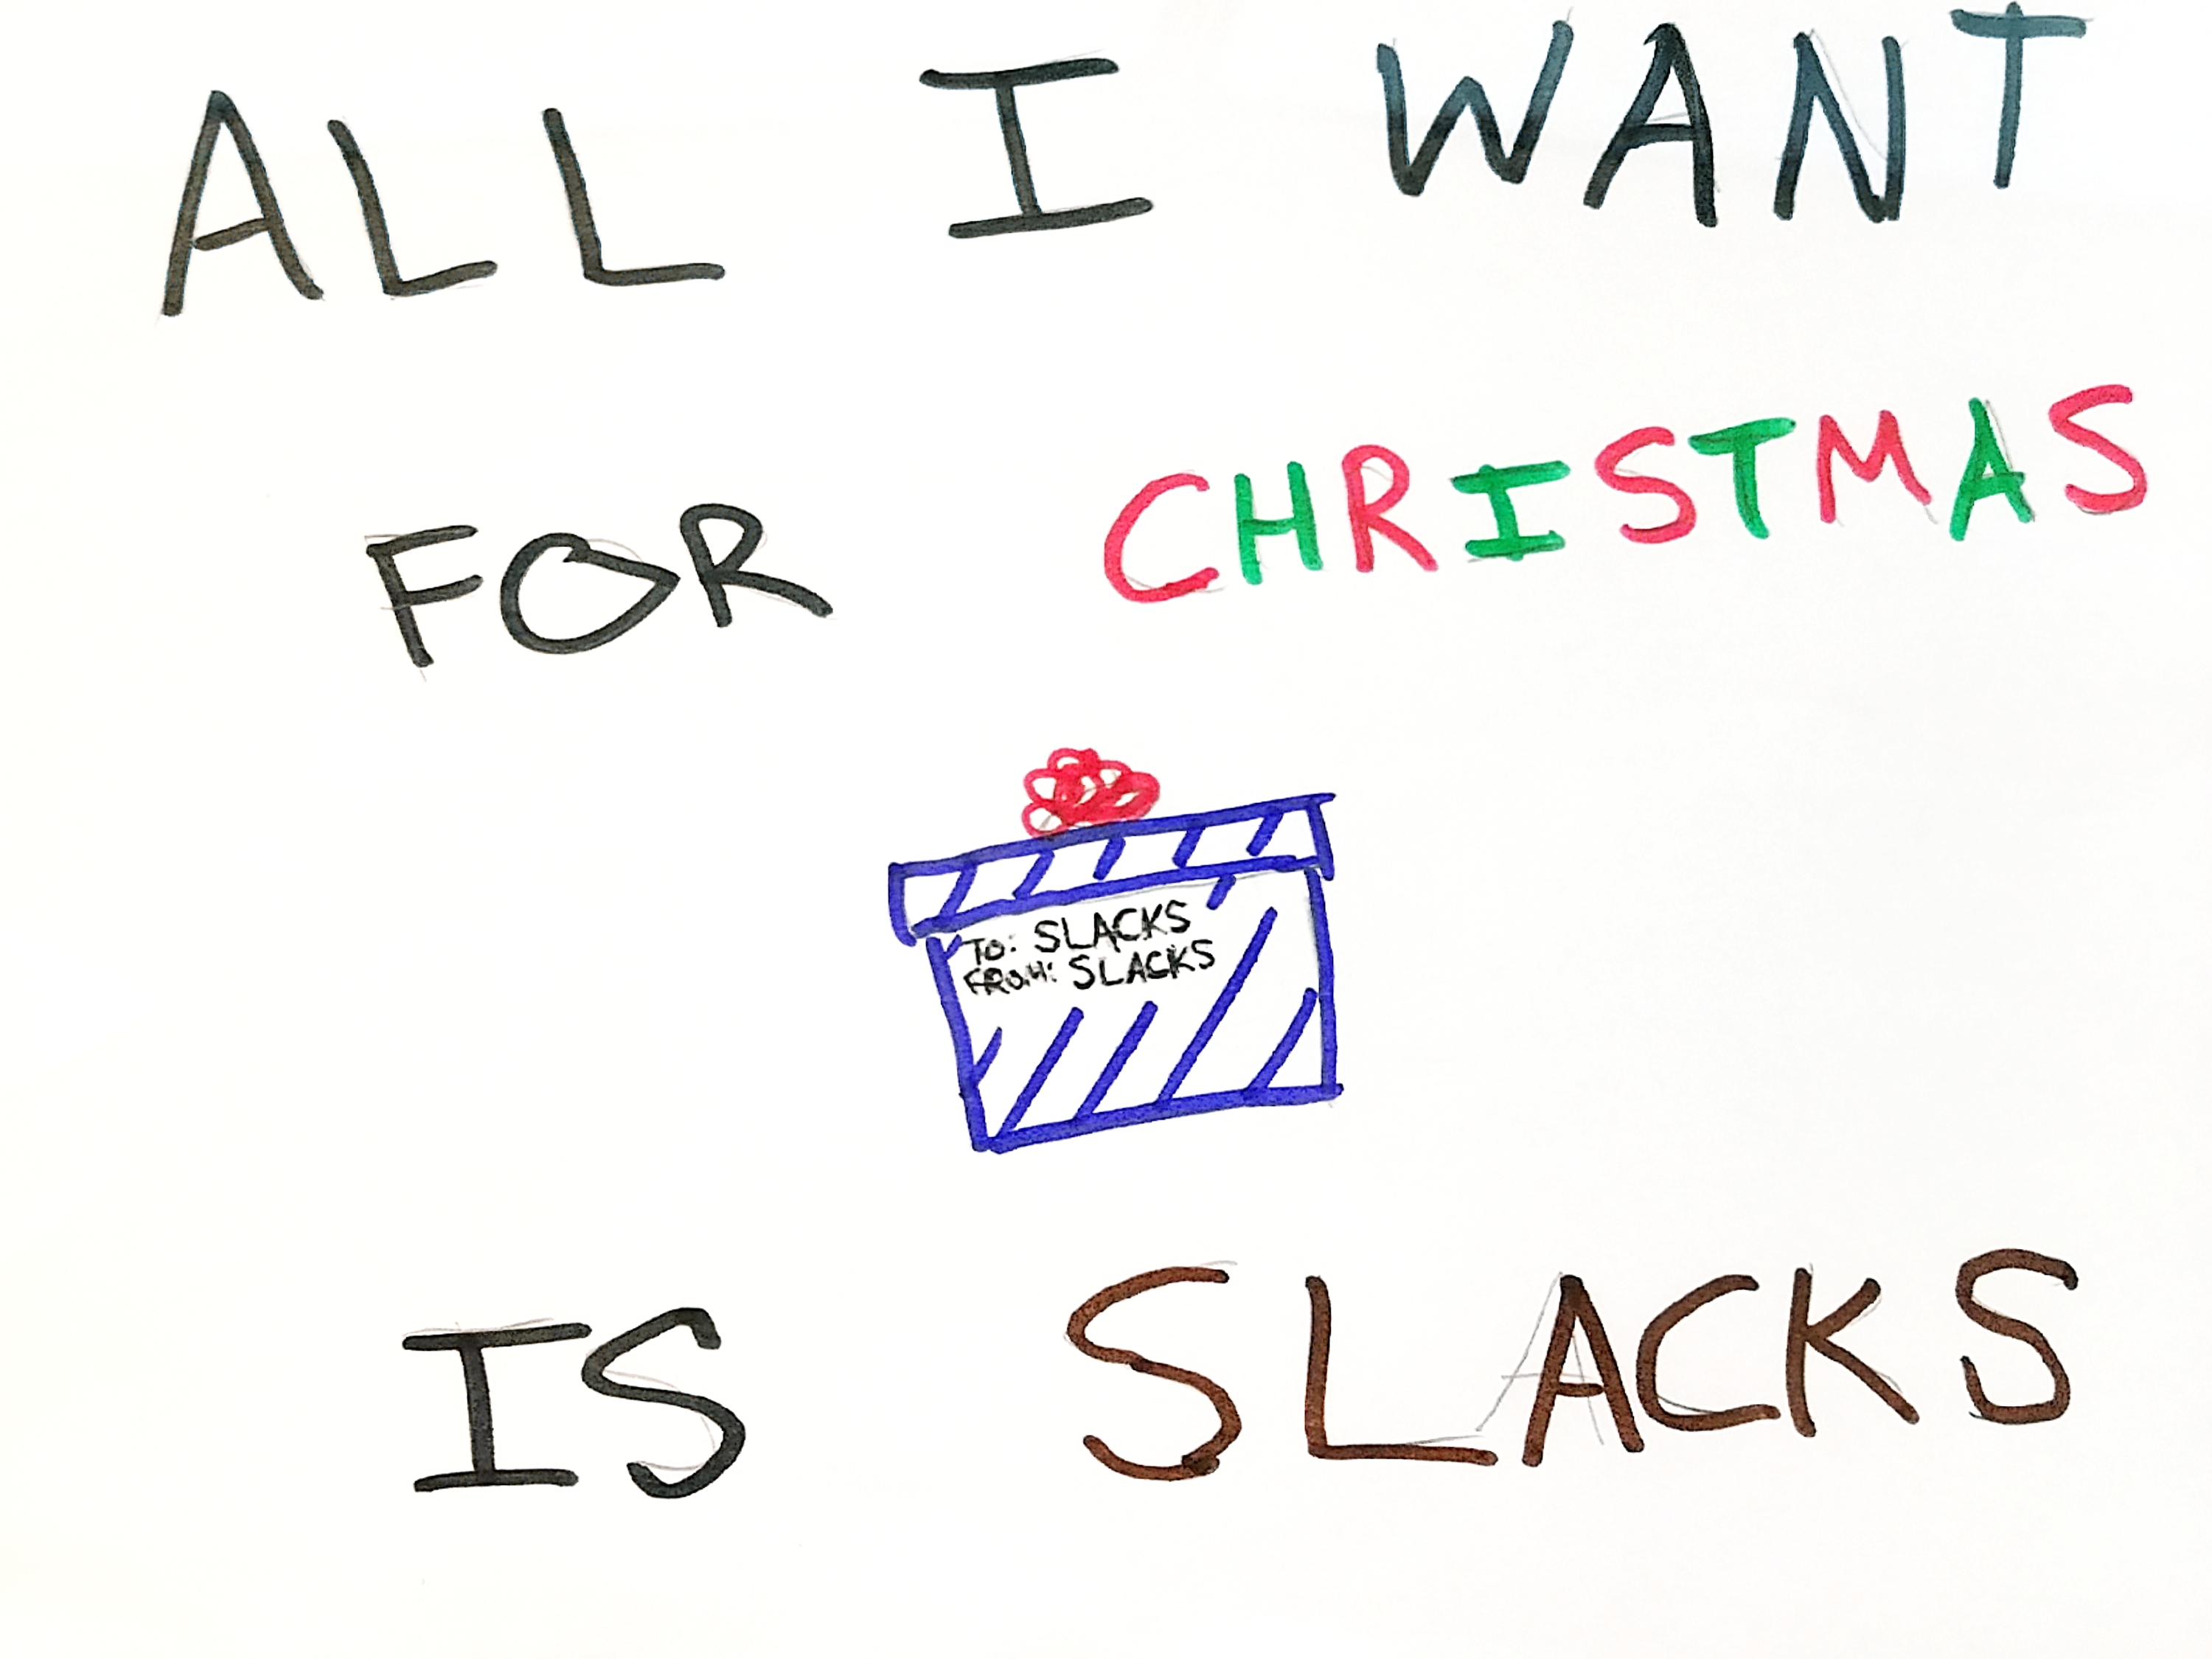 ALL I WANT
FOR CHRISTMAS
TO: SLACKS
FROM: SLACKS
IS SLACKS